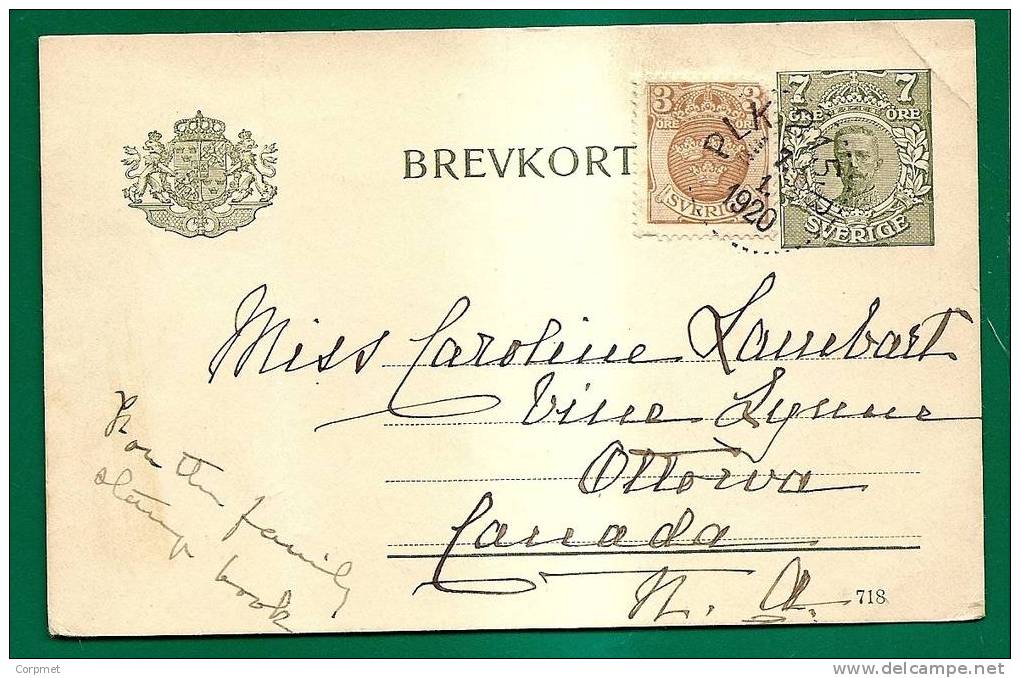 BREVKORT
3 3
ÖRE ÖRE
SVERIGE
7 7
ÖRE ÖRE
SVERIGE
PLK
1920
Miss Caroline Lambart
Vine Lynne
Ottowa
Canada
N. A.
718
the family
stamp
book
Corpmet
www.delcampe.net